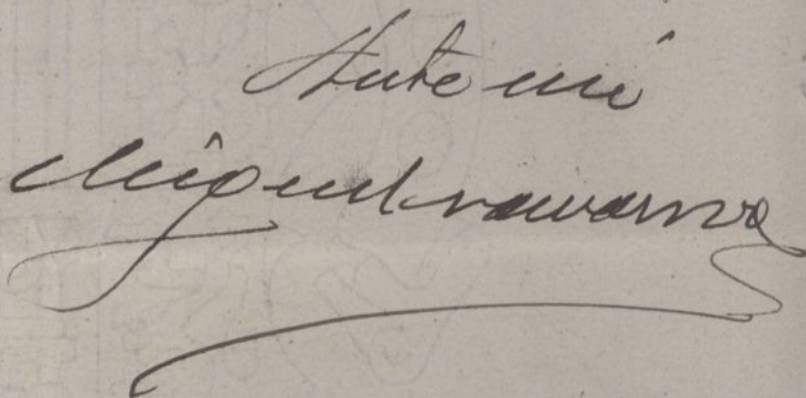 Ante mi
Miguel Navarro